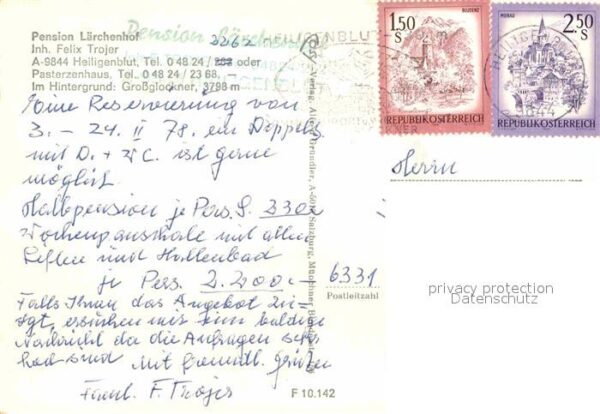 Pension Lärchenhof
Inh. Felix Trojer
A-9844 Heiligenblut, Tel. 0 48 24 / 2262 oder
Pasterzenhaus, Tel. 0 48 24 / 23 68.
Im Hintergrund: Großglockner, 3798 m
Pension Lärchenhof
HEILIGENBLUT
BLUDENZ
1.50 S
REPUBLIK ÖSTERREICH
MURAU
2.50 S
REPUBLIK ÖSTERREICH
HEILIGENBLUT
9844
Eine Reservierung von
3. – 24. II 78. ein Doppelz.
mit D. + WC. ist gerne
möglich
Halbpension je Pers. S. 230.-
Wochenpauschale mit allen
Liften und Hallenbad
je Pers. 2.200.-
Falls Ihnen das Angebot zu-
sagt, ersuchen wir um baldige
Nachricht da die Anfragen sehr
hoch sind Mit freundl. Grüßen
Faml. F. Trojer
Herrn
6331
Postleitzahl
F 10.142
privacy protection
Datenschutz